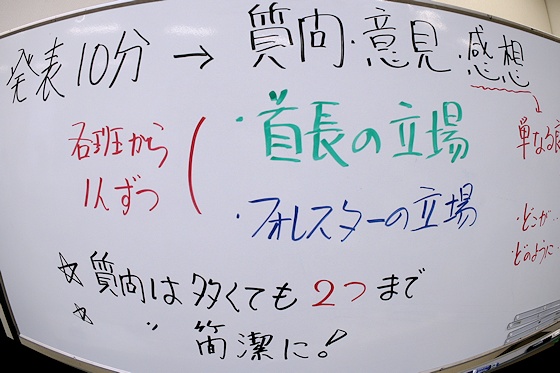 発表10分 → 質問・意見・感想
各班から
1人ずつ
・首長の立場
・フォレスターの立場
単なる
・どこが‥
どのように
☆ 質問は多くても2つまで
☆ 〃 簡潔に!